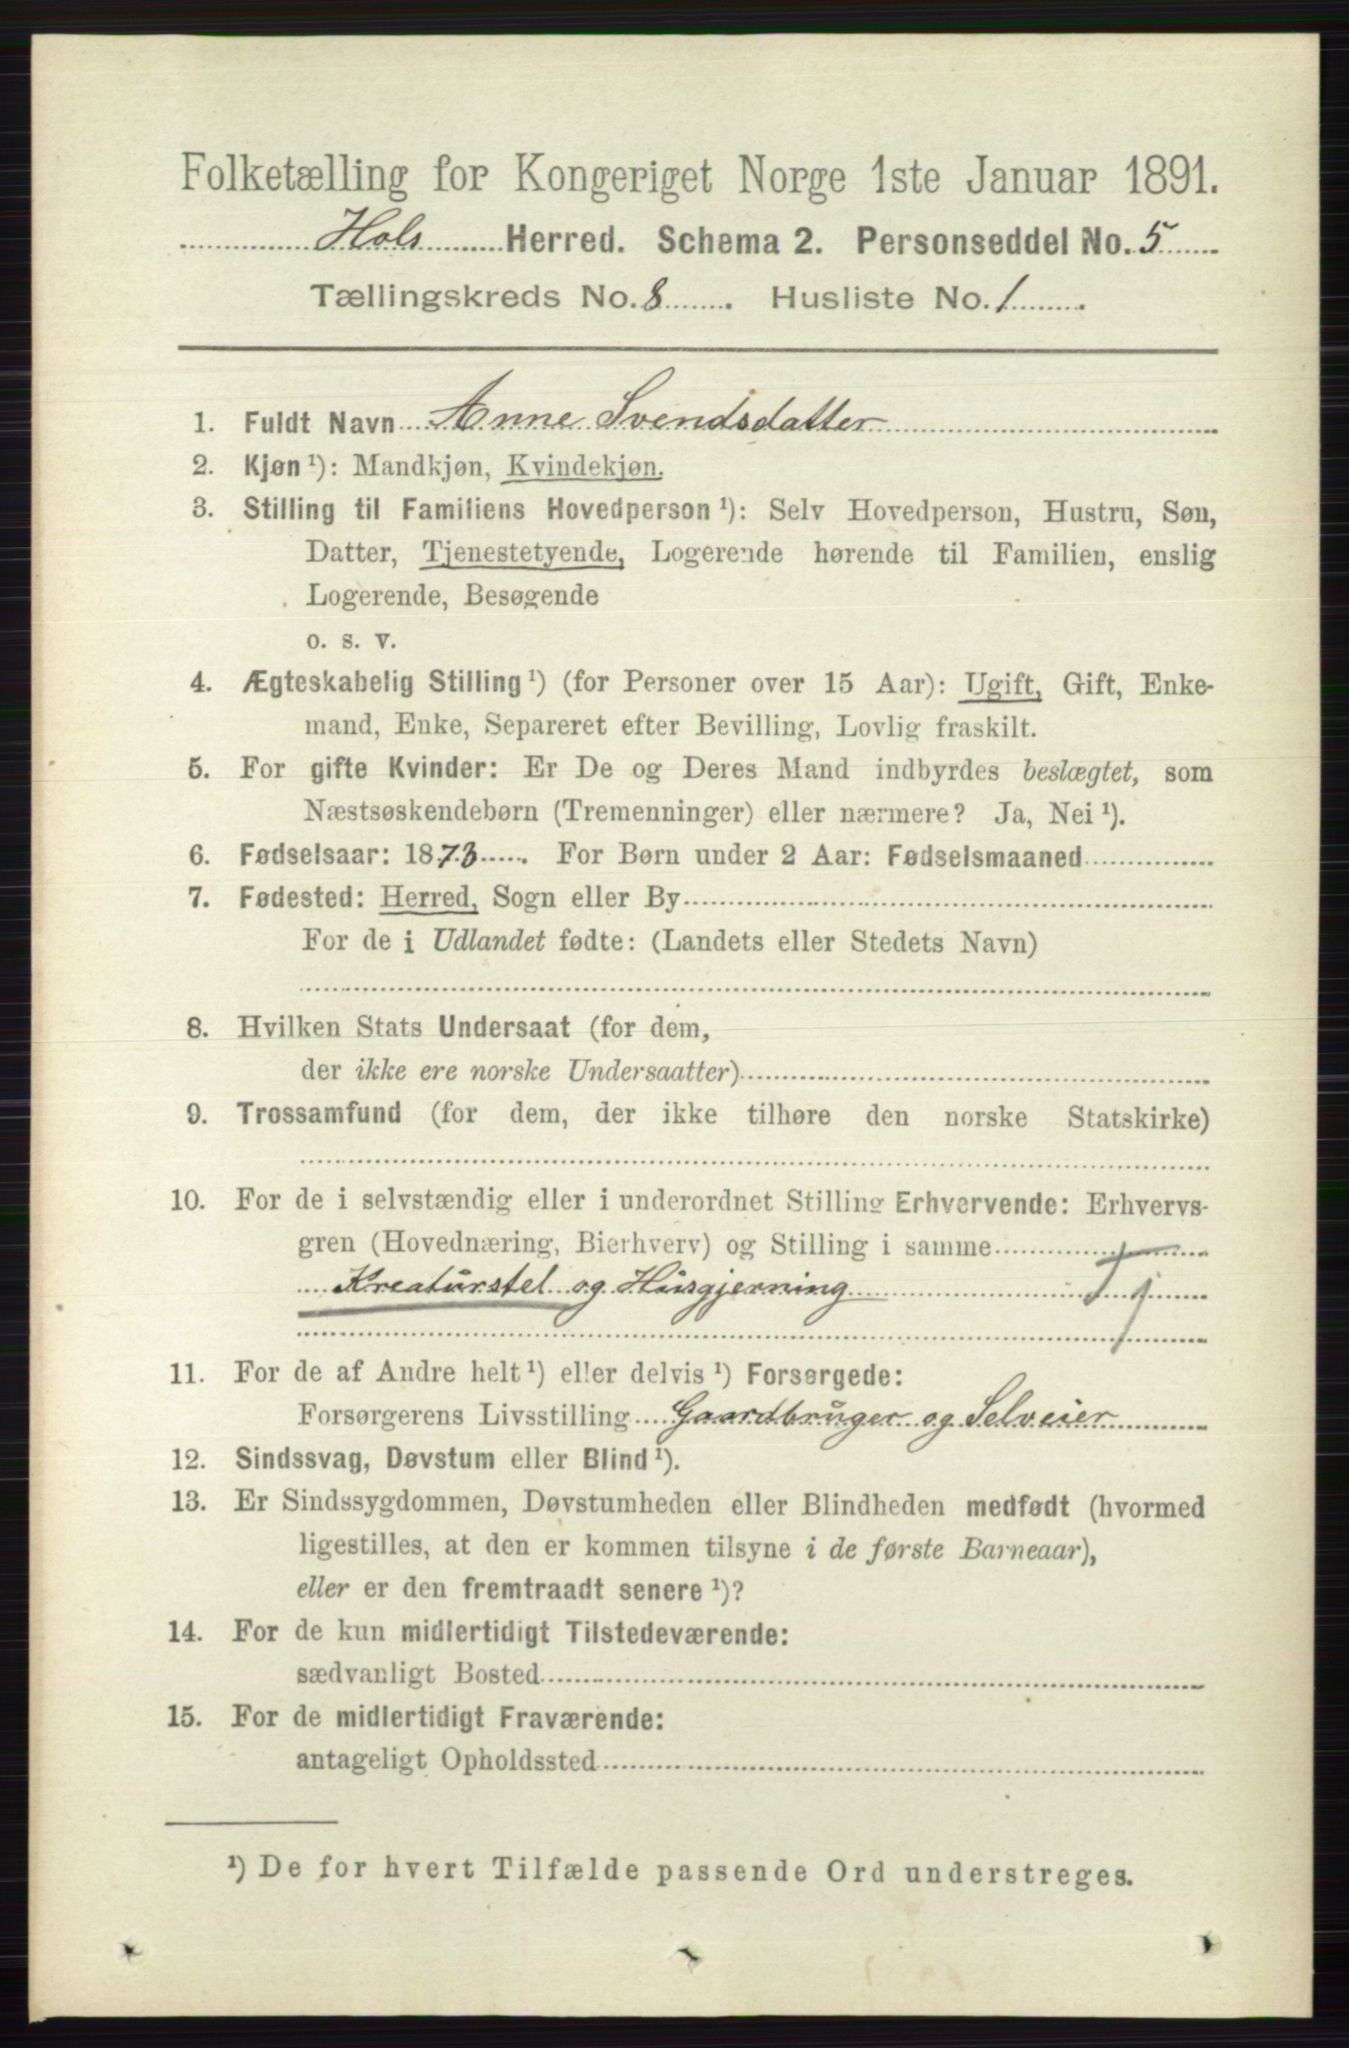 Folketælling for Kongeriget Norge 1ste Januar 1891.
Hols Herred. Schema 2. Personseddel No. 5
Tællingskreds No. 8. Husliste No. 1.
1. Fuldt Navn Anne Svendsdatter
2. Kjøn ¹): Mandkjøn, Kvindekjøn.
3. Stilling til Familiens Hovedperson ¹): Selv Hovedperson, Hustru, Søn,
Datter, Tjenestetyende, Logerende hørende til Familien, enslig
Logerende, Besøgende
o. s. v.
4. Ægteskabelig Stilling ¹) (for Personer over 15 Aar): Ugift, Gift, Enke-
mand, Enke, Separeret efter Bevilling, Lovlig fraskilt.
5. For gifte Kvinder: Er De og Deres Mand indbyrdes beslægtet, som
Næstsøskendebørn (Tremenninger) eller nærmere? Ja, Nei ¹).
6. Fødselsaar: 1873. For Børn under 2 Aar: Fødselsmaaned
7. Fødested: Herred, Sogn eller By
For de i Udlandet fødte: (Landets eller Stedets Navn)
8. Hvilken Stats Undersaat (for dem,
der ikke ere norske Undersaatter)
9. Trossamfund (for dem, der ikke tilhøre den norske Statskirke)
10. For de i selvstændig eller i underordnet Stilling Erhvervende: Erhvervs-
gren (Hovednæring, Bierhverv) og Stilling i samme
Kreaturstel og Husgjerning Tj
11. For de af Andre helt ¹) eller delvis ¹) Forsørgede:
Forsørgerens Livsstilling Gaardbruger og Selveier
12. Sindssvag, Døvstum eller Blind ¹).
13. Er Sindssygdommen, Døvstumheden eller Blindheden medfødt (hvormed
ligestilles, at den er kommen tilsyne i de første Barneaar),
eller er den fremtraadt senere ¹)?
14. For de kun midlertidigt Tilstedeværende:
sædvanligt Bosted
15. For de midlertidigt Fraværende:
antageligt Opholdssted
¹) De for hvert Tilfælde passende Ord understreges.